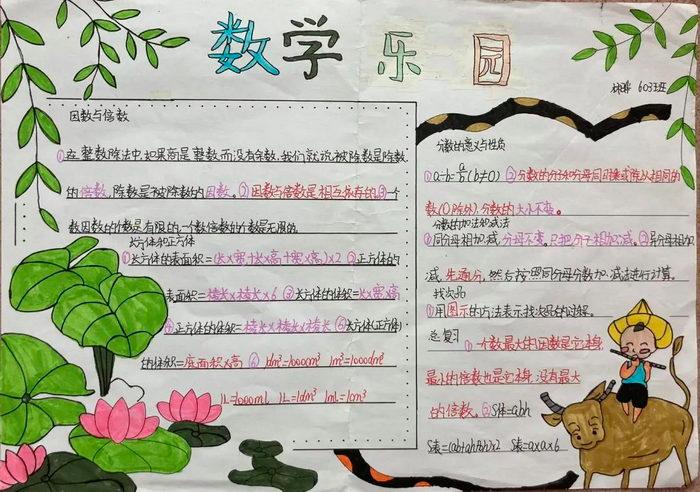 数学乐园
603班
因数与倍数
①在整数除法中,如果商是整数而没有余数,我们就说被除数是除数
的倍数,除数是被除数的因数。②因数与倍数是相互依存的。③一个
数因数的个数是有限的,一个数倍数的个数是无限的。
长方体和正方体
①长方体的表面积=(长×宽+长×高+宽×高)×2 ②正方体的
表面积=棱长×棱长×6 ③长方体的体积=长×宽×高
④正方体的体积=棱长×棱长×棱长 ⑤长方体(正方体)
的体积=底面积×高 ⑥ 1dm³=1000cm³ 1m³=1000dm³
1L=1000ml 1L=1dm³ 1ml=1cm³
分数的意义与性质
①a÷b=a/b(b≠0) ②分数的分子和分母同时乘或除以相同的
数(0除外),分数的大小不变。
分数的加法和减法
①同分母相加、减,分母不变,只把分子相加、减。②异分母相加、
减,先通分,然后按照同分母分数加、减法进行计算。
找次品
①用图示的方法表示找次品的过程。
总复习
①一个数最大的因数是它本身,
最小的倍数也是它本身,没有最大
的倍数。②S体=abh
S表=(ab+ah+bh)×2 S表=a×a×6